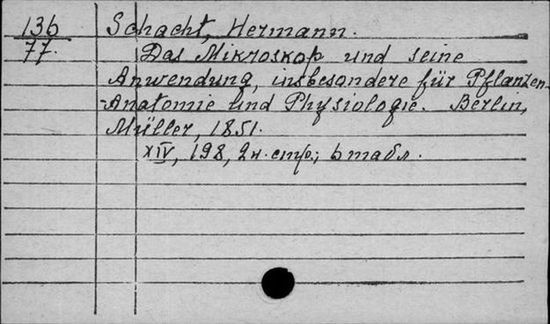 136 Schacht, Hermann.
77. Das Mikroskop und seine
Anwendung, insbesondere für Pflanzen-
Anatomie und Physiologie. Berlin,
Müller, 1851.
XIV, 198, 2 н. стр.; 6 табл.